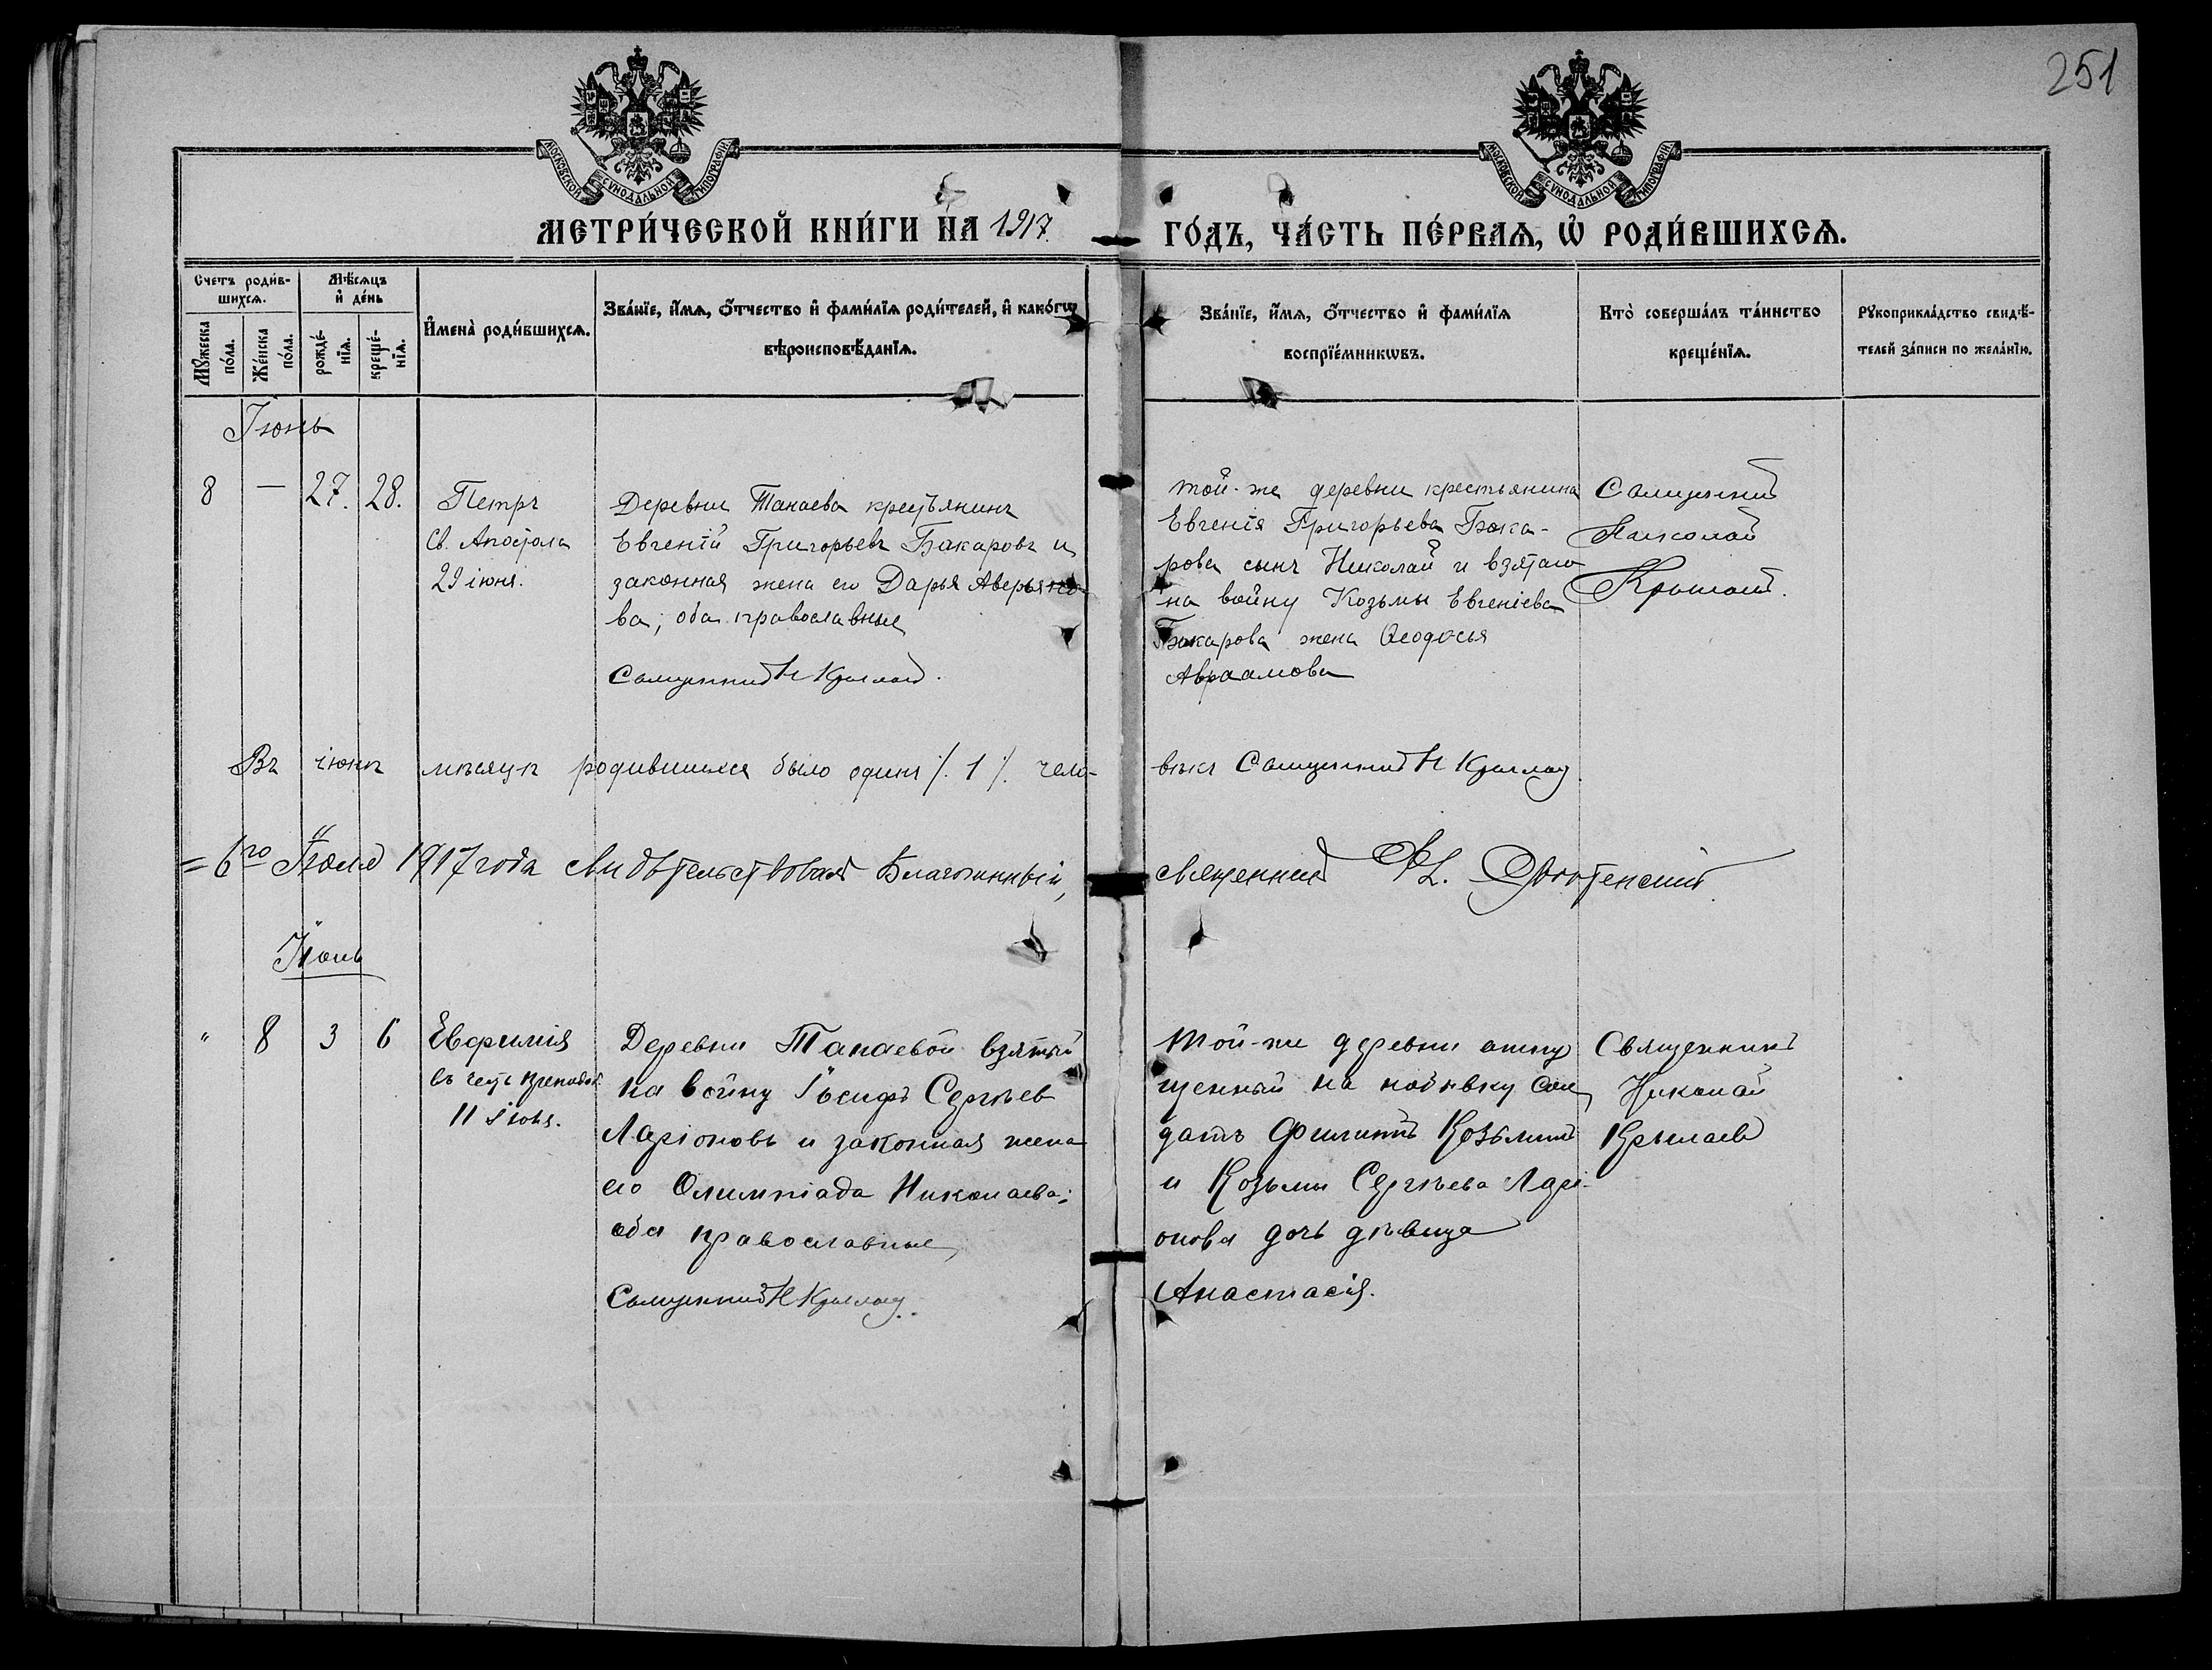 251
МОСКОВСКОЙ СУНОДАЛЬНОЙ ТИПОГРАФІИ
МОСКОВСКОЙ СУНОДАЛЬНОЙ ТИПОГРАФІИ
МЕТРИ́ЧЕСКОЙ КНИ́ГИ НА 1917. ГО́ДЪ, ЧА́СТЬ ПЕ́РВАѦ, Ѡ РОДИ́ВШИХСѦ.
Счетъ роди́в-
шихсѧ.
Мꙋжеска
по́ла.
Же́нска
по́ла.
Мѣ́сѧцъ
и҆ де́нь
рожде́-
нїѧ.
креще́-
нїѧ.
И҆мена̀ роди́вшихсѧ.
Зва́нїе, и҆́мѧ, ѻ҆́тчество и҆ фами́лїѧ роди́телей, и҆ како́гѡ
вѣроисповѣ́данїѧ.
Зва́нїе, и҆́мѧ, ѻ҆́тчество и҆ фами́лїѧ
воспрїе́мникѡвъ.
Кто̀ соверша́лъ та́инство
креще́нїѧ.
Рꙋкоприкла́дство свидѣ́-
телей за́писи по жела́нїю.
Іюнь
8 — 27. 28.
Петръ
Св. Апостола
29 іюня.
Деревни Танаева крестьянинъ
Евгеній Григорьевъ Бакаровъ и
законная жена его Дарья Аверьяно-
ва; оба православные
Священникъ Н Крыловъ.
той-же деревни крестьянина
Евгенія Григорьева Бака-
рова сынъ Николай и взятаго
на войну Козьмы Евгеніева
Бакарова жена Ѳеодосья
Авраамова
Священникъ
Николай
Крыловъ.
Въ іюнѣ мѣсяцѣ родившихся было одинъ ⁒ 1 ⁒ чело-
вѣкъ Священникъ Н Крыловъ
= 6го Іюля 1917 года свидѣтельствовалъ Благочинный,
священникъ
Іюль
" 8 3 6
Евфимія
въ честь преподоб.
11 Іюля.
Деревни Танаевой взятый
на войну Іосифъ Сергѣев
Ларіоновъ и законная жена
его Олимпіада Николаева;
оба православные,
Священникъ Н Крыловъ.
Той-же деревни отпу
щенный на побывку сол
датъ Филиппъ Козьминъ
и Козьмы Сергѣева Лари-
онова дочь дѣвица
Анастасія.
Священникъ
Николай
Крылов